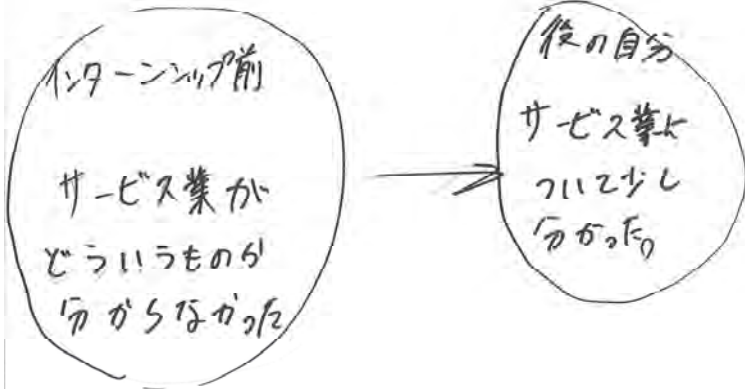 インターンシップ前
サービス業が
どういうものか
分からなかった
後の自分
サービス業に
ついて少し
分かった。